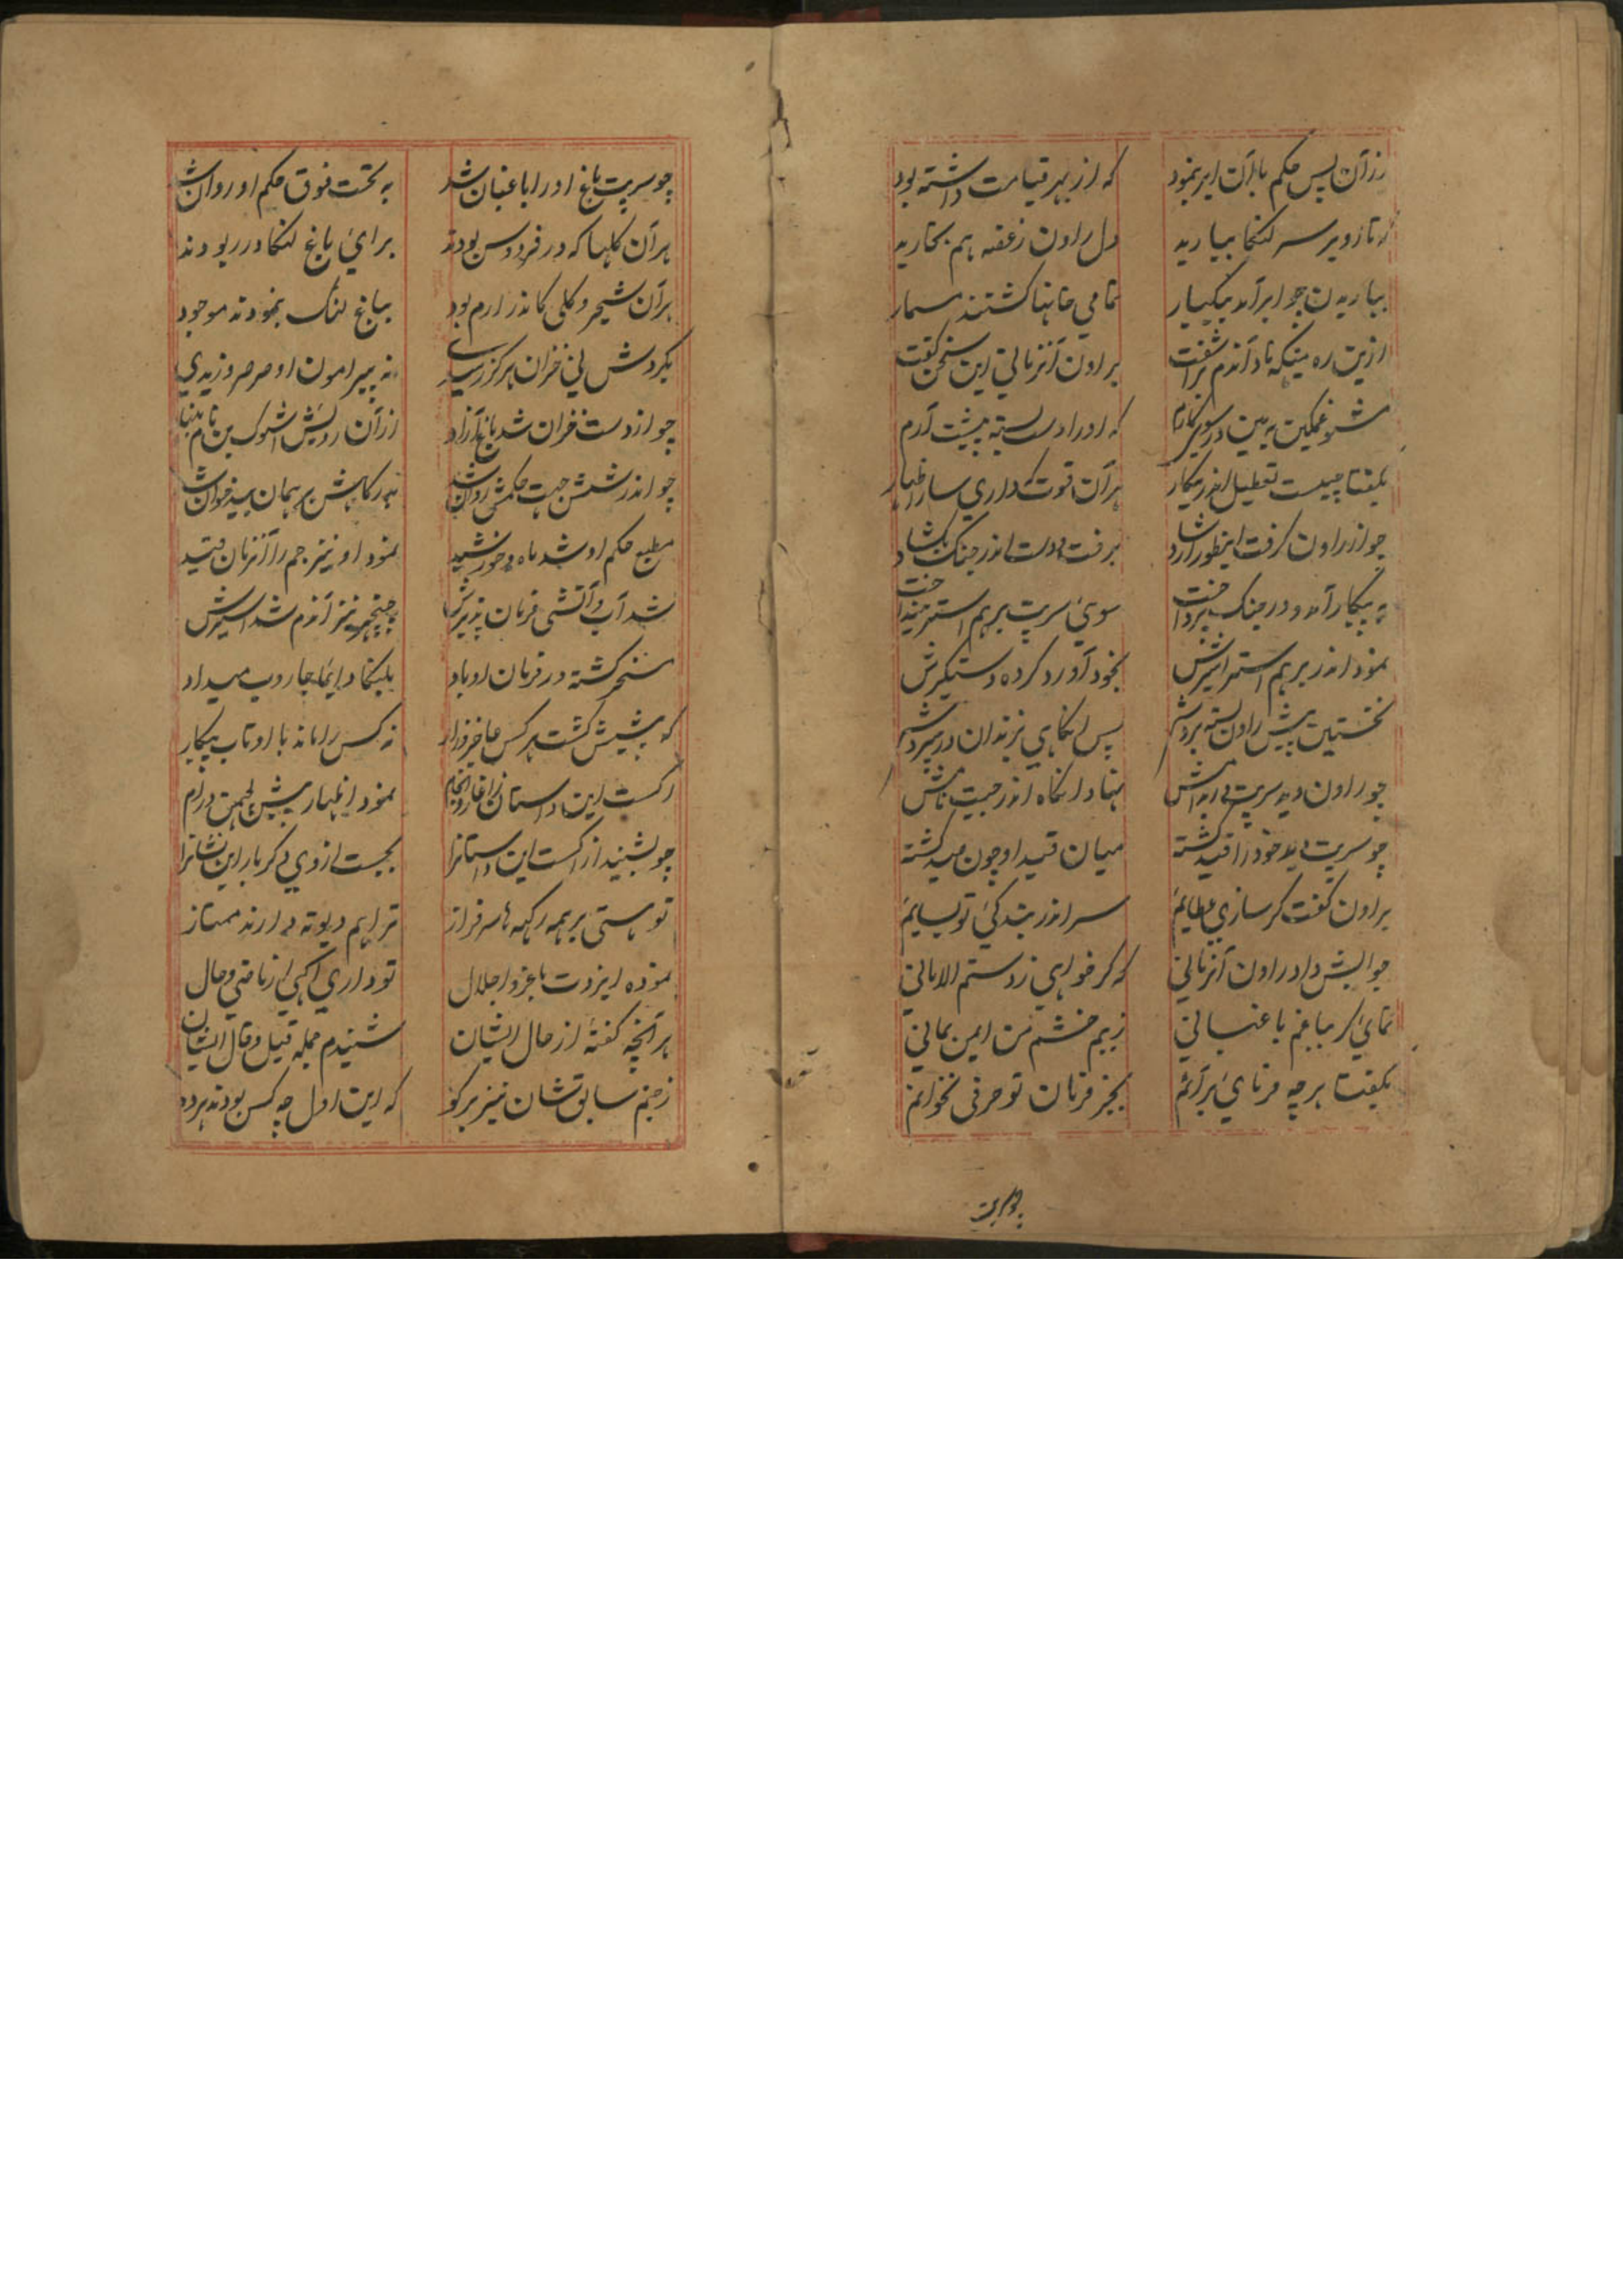 زان پس حکم باران ابر بنمود که از بهر قیامت داشته بود
که تا زو بر سر لنکا ببارید دل راون ز غصه هم بخارید
بباریدن چو ابر آمد بیکبار تمامی خانها کشتند مسمار
ازین ره میکه ناد آندم براشفت براون آنزمانی این سخن کفت
مشو غمکین ببین در سوی کارم که او را دست بسته پیشت آرم
بکفتا چیست تعطیل اندر بیکار هر آن قوت که داری ساز اظهار
چو از راون کرفت اینطور ارشاد برفت و دست اندر جنک بکشاد
به پیکار آمد و در جنک پرداخت سوی سرپت برهم استر بینداخت
نمود اندر برهم استر اسیرش بخود آورد کرده دستکیرش
نخستین پیش راون بسته بردش پس انکاهی بزندان در سپردش
چو راون دید سرپت نهاد انکاه اندر جیت نامش
چو سرپت دید خود را قید کشته میان قید او چون صید کشته
براون کفت کر سازی عطایم سر اندر بندکی تو بسایم
جوابش داد راون آنزمانی که کر خواهی ز دستم الامانی
نمایی کر بباغم باغبانی ز بیم خشم من ایمن بمانی
بکفتا هر چه فرمایی برآنم بجز فرمان تو حرفی نخوانم
چو سرپت
چو سرپت باغ او را باغبان شد به تحت فوق حکم او روان شد
هر آن کلها که در فردوس بودند برای باغ لنکا در ربودند
هر آن شجر و کلی کاندر ارم بود بباغ لنک بنمودند موجود
بکردش نی خزان هرکز رسیدی نه پیرامون او صرصر وزیدی
چو از دست خزان شد باغ آزاد از آن رویش اشوک بن نام بنهاد
چو اندر شش جهت حکمش روان شد بدرکاهش برهمان بید خوان شد
مطیع حکم او شد ماه و خورشید نمود او نیز جم را آنزمان قید
شد آب و آتشی فرمان پذیرش نیز آندم شد اسیرش
مسخر کشته در فرمان او باد بلنکا دایما جاروب میداد
که پیشش کشت هر کس عاجز و زار نه کس را ماند با او تاب پیکار
اکست این داستان ز آغاز و انجام نمود اظهار پیش لچهمن و رام
چو بشنید از اکست این داستانرا بجست از وی دکر بار این نشانرا
تو هستی بر همه رکهه ها سرفراز ترا هم دیوته دارند ممتاز
نموده ایزدت با عز و اجلال تو داری آکهی از ماضی و حال
هر آنچه کفتهٔ از حال ایشان شنیدم جمله قیل و قال ایشان
ز جنم سابق شان نیز برکو که این اول چه کس بودند هر دو